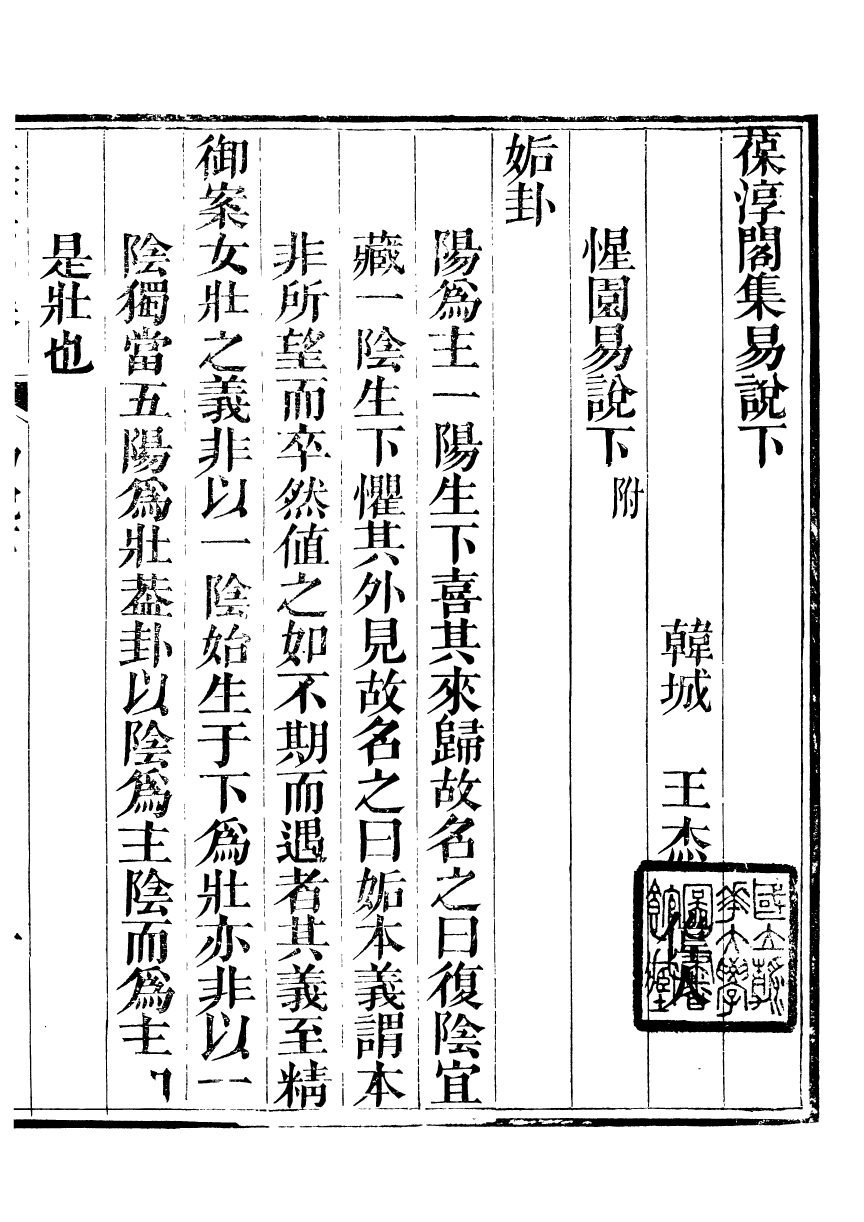 葆淳閣集易說下
韓城　王杰
惺園易說下 附
姤卦
陽爲主一陽生下喜其來歸故名之曰復陰宜
藏一陰生下懼其外見故名之曰姤本義謂本
非所望而卒然值之如不期而遇者其義至精
御案女壯之義非以一陰始生于下爲壯亦非以一
陰獨當五陽爲壯葢卦以陰爲主陰而爲主
是壯也
國立清
華大學
圖書
館藏